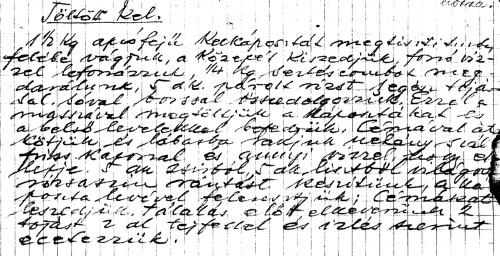 Töltött Kel.
1½ Kg apró fejű Kelkáposztát megtisztítunk
felébe vágjuk, a Közepét Kiszedjük, forró víz-
zel leforrázzuk, ¼ Kg sertéscombot meg-
darálunk, 5 dk. párolt rizst egész tojás-
sal, sóval borssal összedolgozzuk. Ezzel a
masszával megtöltjük a Káposztákat és
a belső levelekkel befedjük. Cérnával át
Kötjük és lábasba rakjuk néhány szál
friss Kaporral és annyi vízzel, hogy el-
lepje. 5 dk zsírból, 5 dk lisztből világos
rózsaszín rántást Készítünk, a Ká-
poszta levével felengedjük; Cérnászát
leszedjük. Tálalás előtt elkeverünk 2
tojást 2 dl tejfellel és ízlés szerint
ecetezzük.